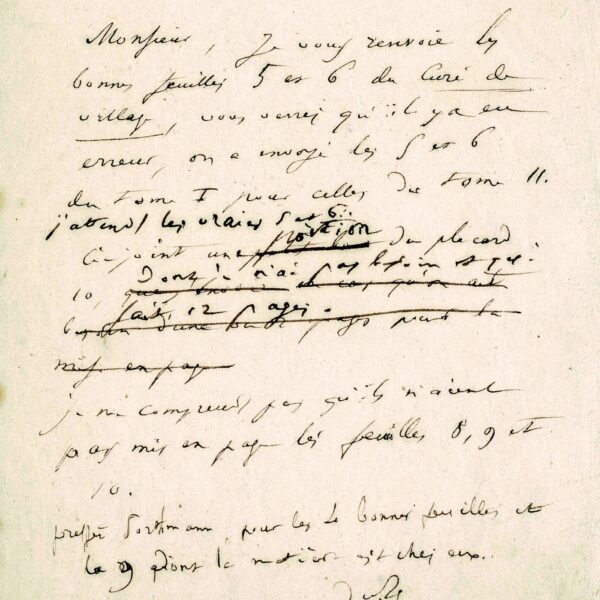 Monsieur, je vous renvoie les
bonnes feuilles 5 et 6 du Curé de
village, vous verrez qu'il y a eu
erreur, on a envoyé les 5 et 6
du tome I pour celles du tome II.
j'attends les vraies 5 et 6.
portion
Ci-joint une du placard
dont je n'ai pas besoin et qui
10,
fait 12 pages.
besoin d'une page pour la
mise en page
je ne comprends pas qu'ils n'aient
pas mis en page les feuilles 8, 9 et
10.
pressez pour les 4 bonnes feuilles et
la 9 dont la matière est chez eux.